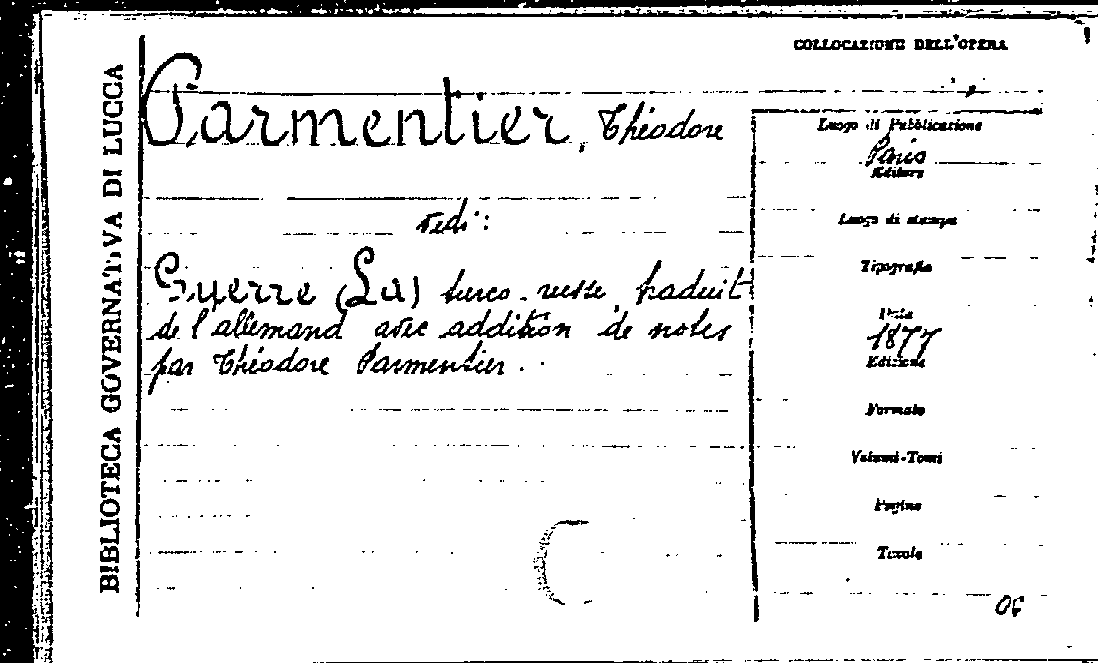 BIBLIOTECA GOVERNATIVA DI LUCCA
COLLOCAZIONE DELL'OPERA
Parmentier, Théodore
vedi:
Guerre (La) turco-russe, traduit
de l'allemand avec addition de notes
par Théodore Parmentier.
Luogo di Pubblicazione
Paris
Editore
Luogo di stampa
Tipografia
Data
1877
Edizione
Formato
Volumi-Tomi
Pagine
Tavole